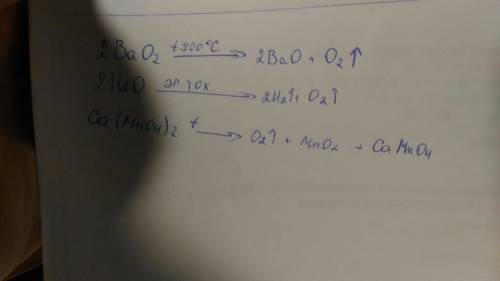 2BaO₂ t 500°C → 2BaO + O₂↑
2H₂O эл. ток → 2H₂↑ + O₂↑
Ca(MnO₄)₂ t → O₂↑ + MnO₂ + CaMnO₄